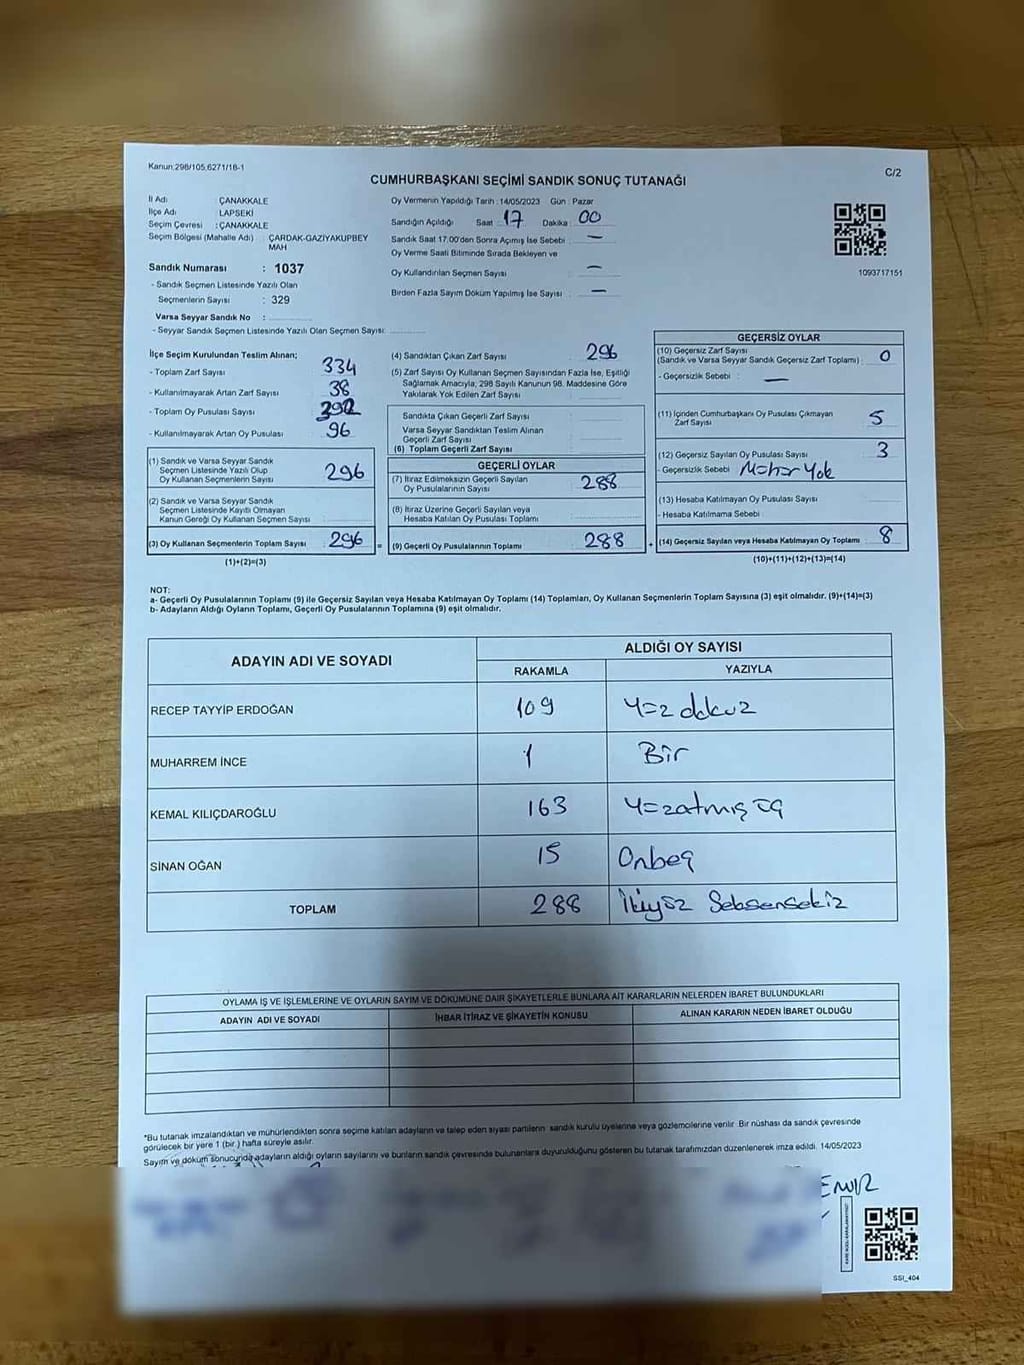 Kanun:298/105,6271/16-1
C/2
CUMHURBAŞKANI SEÇİMİ SANDIK SONUÇ TUTANAĞI
İl Adı : ÇANAKKALE
İlçe Adı : LAPSEKİ
Seçim Çevresi : ÇANAKKALE
Seçim Bölgesi (Mahalle Adı) : ÇARDAK-GAZİYAKUPBEY
MAH
Sandık Numarası : 1037
- Sandık Seçmen Listesinde Yazılı Olan
Seçmenlerin Sayısı : 329
Varsa Seyyar Sandık No :
- Seyyar Sandık Seçmen Listesinde Yazılı Olan Seçmen Sayısı:
Oy Vermenin Yapıldığı Tarih : 14/05/2023 Gün : Pazar
Sandığın Açıldığı Saat : 17 Dakika : 00
Sandık Saat 17.00'den Sonra Açımış İse Sebebi : —
Oy Verme Saati Bitiminde Sırada Bekleyen ve
Oy Kullandırılan Seçmen Sayısı : —
Birden Fazla Sayım Döküm Yapılmış İse Sayısı : —
1093717151
İlçe Seçim Kurulundan Teslim Alınan;
- Toplam Zarf Sayısı : 334
- Kullanılmayarak Artan Zarf Sayısı : 38
- Toplam Oy Pusulası Sayısı : 392
- Kullanılmayarak Artan Oy Pusulası : 96
(1) Sandık ve Varsa Seyyar Sandık
Seçmen Listesinde Yazılı Olup
Oy Kullanan Seçmenlerin Sayısı : 296
(2) Sandık ve Varsa Seyyar Sandık
Seçmen Listesinde Kayıtlı Olmayan
Kanun Gereği Oy Kullanan Seçmen Sayısı :
(3) Oy Kullanan Seçmenlerin Toplam Sayısı : 296 =
(1)+(2)=(3)
(4) Sandıktan Çıkan Zarf Sayısı : 296
(5) Zarf Sayısı Oy Kullanan Seçmen Sayısından Fazla İse, Eşitliği
Sağlamak Amacıyla, 298 Sayılı Kanunun 98. Maddesine Göre
Yakılarak Yok Edilen Zarf Sayısı :
Sandıkta Çıkan Geçerli Zarf Sayısı :
Varsa Seyyar Sandıktan Teslim Alınan
Geçerli Zarf Sayısı :
(6) Toplam Geçerli Zarf Sayısı :
GEÇERLİ OYLAR
(7) İtiraz Edilmeksizin Geçerli Sayılan
Oy Pusulalarının Sayısı : 288
(8) İtiraz Üzerine Geçerli Sayılan veya
Hesaba Katılan Oy Pusulası Toplamı :
(9) Geçerli Oy Pusulalarının Toplamı : 288 +
GEÇERSİZ OYLAR
(10) Geçersiz Zarf Sayısı
(Sandık ve Varsa Seyyar Sandık Geçersiz Zarf Toplamı) : 0
- Geçersizlik Sebebi : —
(11) İçinden Cumhurbaşkanı Oy Pusulası Çıkmayan
Zarf Sayısı : 5
(12) Geçersiz Sayılan Oy Pusulası Sayısı : 3
- Geçersizlik Sebebi : Mühür Yok
(13) Hesaba Katılmayan Oy Pusulası Sayısı :
- Hesaba Katılmama Sebebi :
(14) Geçersiz Sayılan veya Hesaba Katılmayan Oy Toplamı : 8
(10)+(11)+(12)+(13)=(14)
NOT:
a- Geçerli Oy Pusulalarının Toplamı (9) ile Geçersiz Sayılan veya Hesaba Katılmayan Oy Toplamı (14) Toplamları, Oy Kullanan Seçmenlerin Toplam Sayısına (3) eşit olmalıdır. (9)+(14)=(3)
b- Adayların Aldığı Oyların Toplamı, Geçerli Oy Pusulalarının Toplamına (9) eşit olmalıdır.
ADAYIN ADI VE SOYADI
ALDIĞI OY SAYISI
RAKAMLA YAZIYLA
RECEP TAYYİP ERDOĞAN 109 Yüz dokuz
MUHARREM İNCE 1 Bir
KEMAL KILIÇDAROĞLU 163 Yüzatmış üç
SİNAN OĞAN 15 Onbeş
TOPLAM 288 İkiyüz Seksensekiz
OYLAMA İŞ VE İŞLEMLERİNE VE OYLARIN SAYIM VE DÖKÜMÜNE DAİR ŞİKAYETLERLE BUNLARA AİT KARARLARIN NELERDEN İBARET BULUNDUKLARI
ADAYIN ADI VE SOYADI İHBAR İTİRAZ VE ŞİKAYETİN KONUSU ALINAN KARARIN NEDEN İBARET OLDUĞU
*Bu tutanak imzalandıktan ve mühürlendikten sonra seçime katılan adayların ve talep eden siyasi partilerin sandık kurulu üyelerine veya gözlemcilerine verilir. Bir nüshası da sandık çevresinde
görülecek bir yere 1 (bir ) hafta süreyle asılır.
Sayım ve döküm sonucunda adayların aldığı oyların sayılarını ve bunların sandık çevresinde bulunanlara duyurulduğunu gösteren bu tutanak tarafımızdan düzenlenerek imza edildi. 14/05/2023
SSI_404